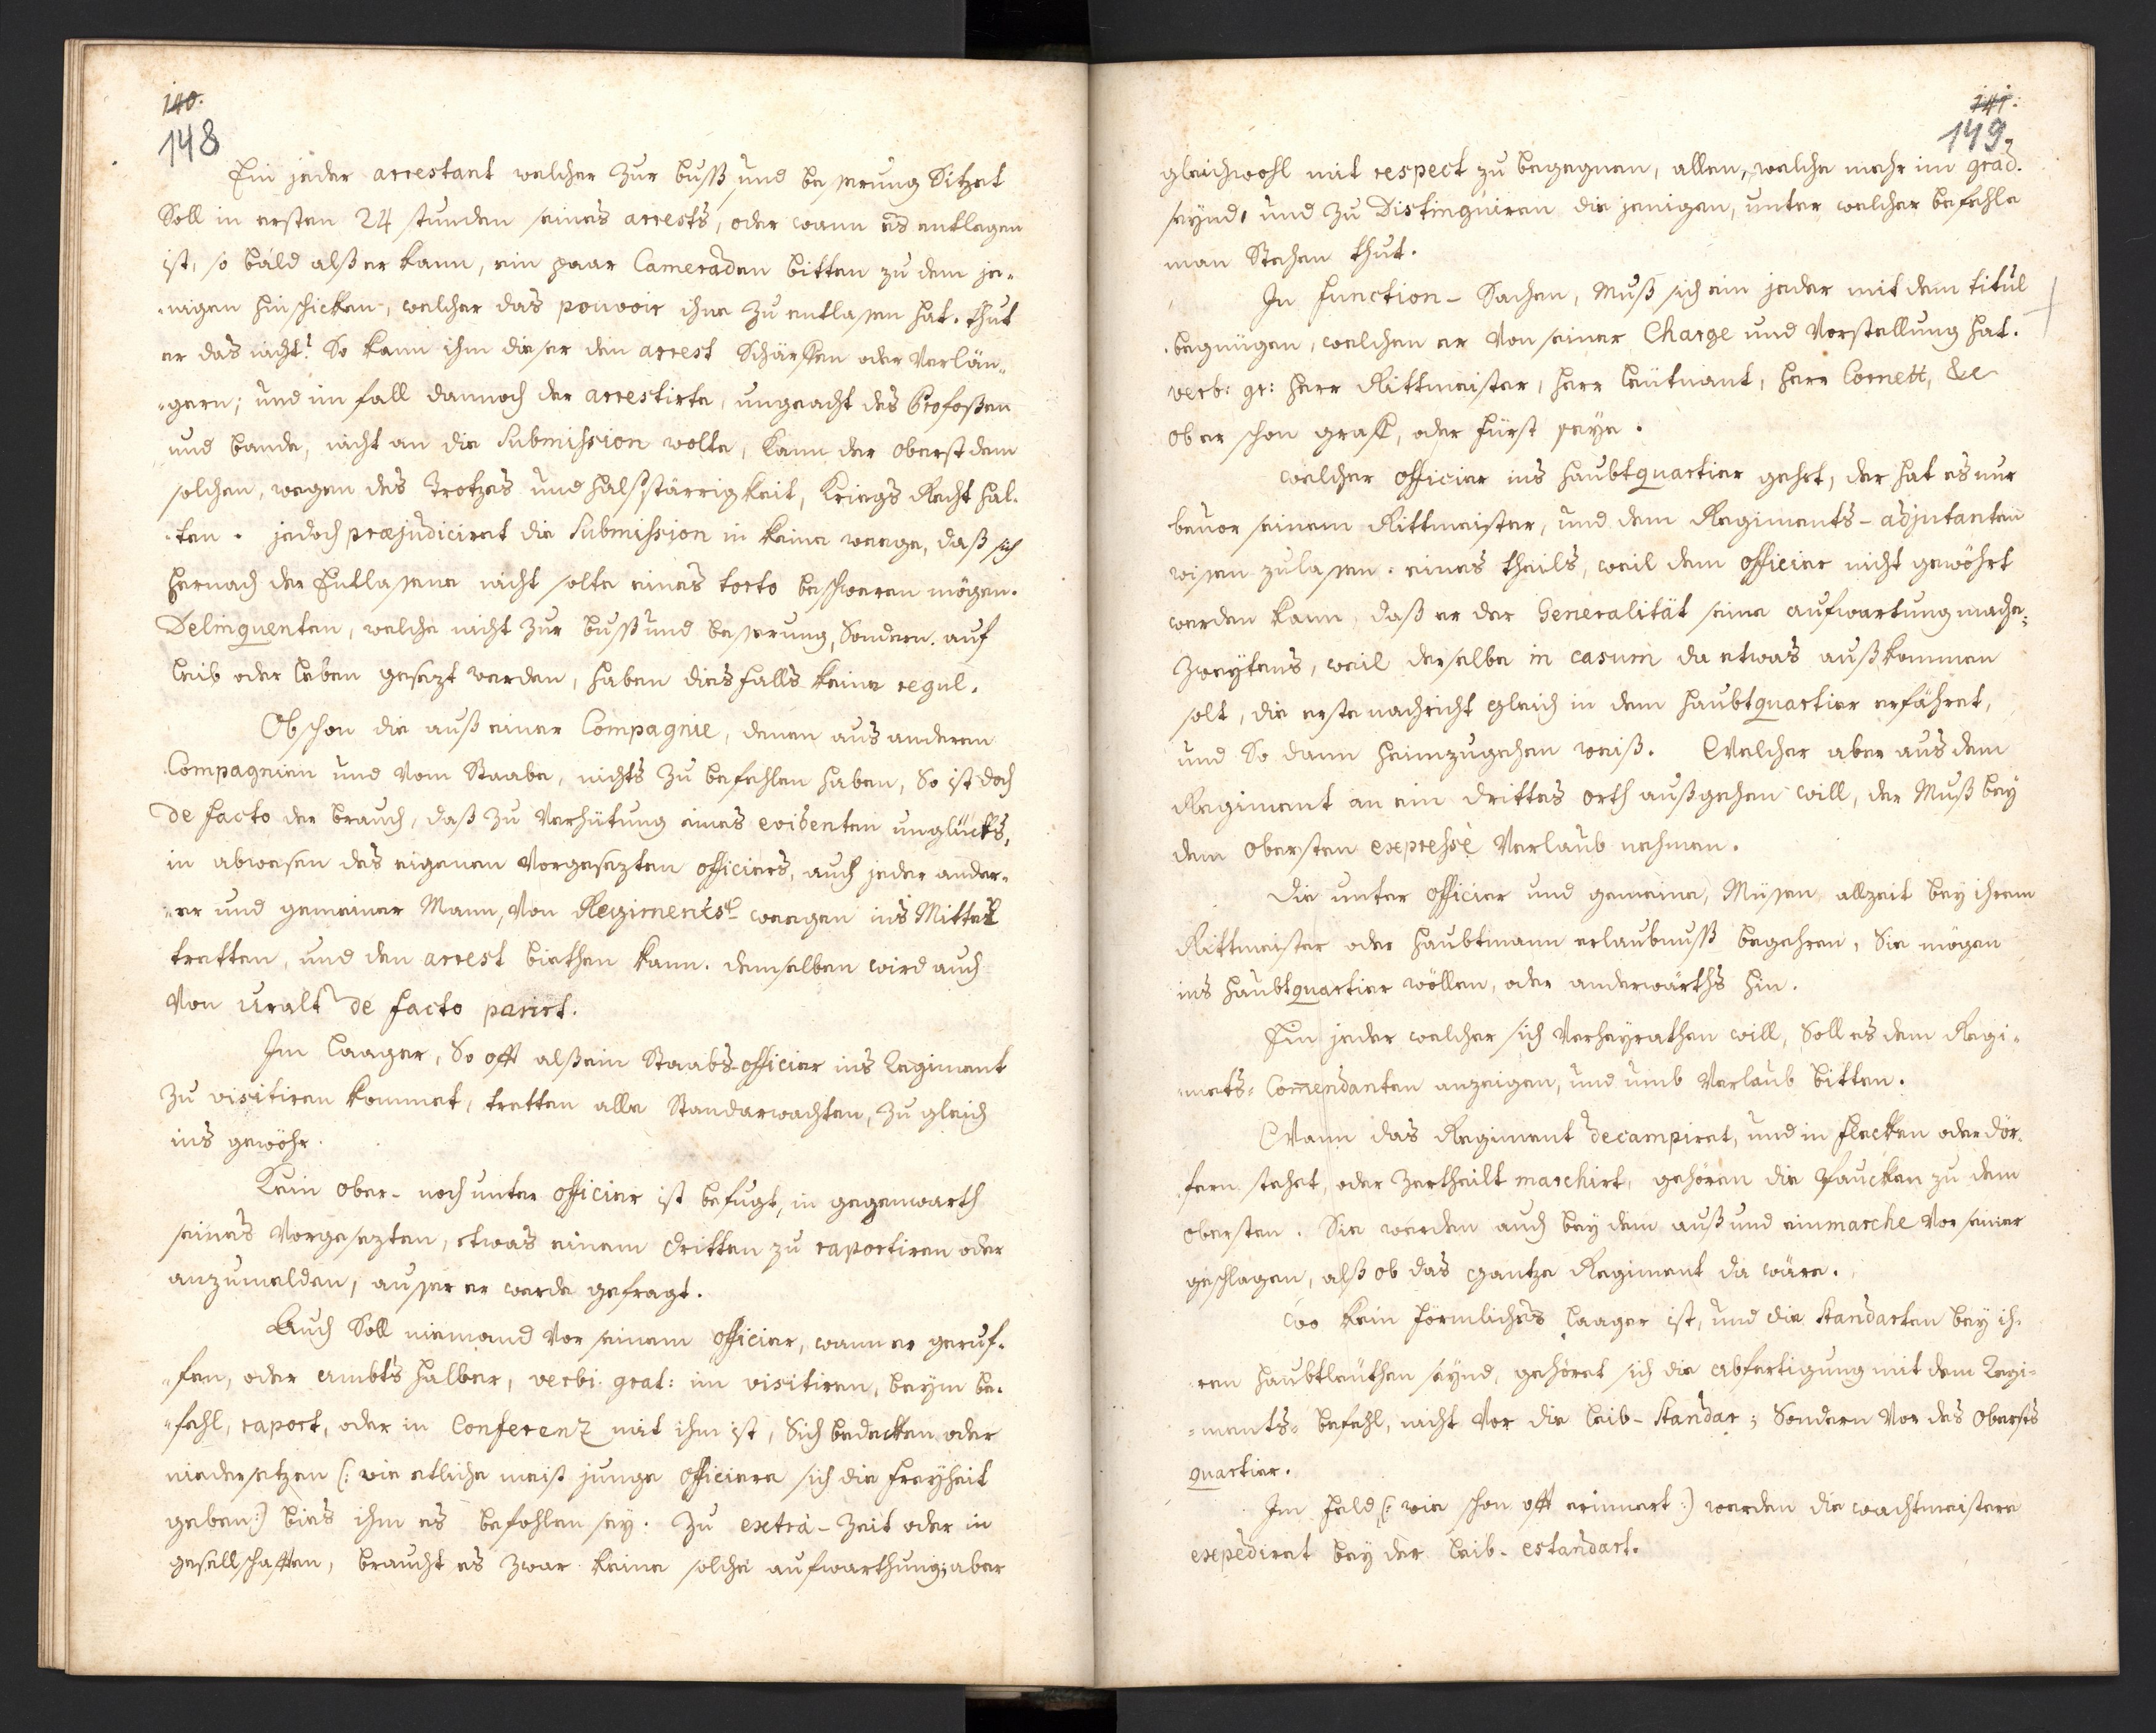 140.
148
Ein jeder arrestant welcher zur buß und besserung Sitzet
Soll in ersten 24 stunden seines arrests, oder wann es entlegen
ist, so bald alß er kann, ein paar Cameraden bitten zu dem je-
-nigen hinschicken, welcher das pouvoir ihne zu entlassen hat. thut
er das nicht? So kann ihm dieser den arrest Schärffen oder Verlän-
-gern; und im fall dannoch der arrestirte, ungeacht des Profoßen
und bande, nicht an die Submission wolte, kann der Oberst dem
solchen, wegen des Trotzes und halßstärrigkeit, Kriegs Recht hal-
-ten. jedoch præjudiciret die Submission in keine weege, daß sich
hernach der Entlassene nicht solte eines torto beschweren mögen.
Delinquenten, welche nicht zur buß und besserung, Sondern auf
leib oder leben gesezt werden, haben diesfalls keine regul.
Obschon die auß einer Compagnie, denen aus anderen
Compagnien und Vom Staabe, nichts zu befehlen haben, So ist doch
de facto der brauch, daß zu Verhütung eines evidenten unglücks,
in abwesen des eigenen Vorgesezten officiers, auch jeder ander-
-er und gemeiner Mann, Von Regiments weegen ins Mittel
tretten, und den arrest biethen kann. demselben wird auch
Von uralt de facto parirt.
Im laager, So offt alß ein Staabs-officier ins Regiment
zu visitiren kommet, tretten alle Standarwachten, zu gleich
ins gewöhr.
Kein ober- noch unter officier ist befugt, in gegenwarth
seines Vorgesezten, etwas einem dritten zu raportiren oder
anzumelden, ausser er werde gefragt.
Auch Soll niemand Vor seinem officier, wann er geruf-
-fen, oder ambts halber, verbi grat: im visitiren, beym be-
-fehl, raport, oder in Conferenz mit ihm ist, Sich bedecken oder
niedersetzen (: wie etliche meist junge officiere sich die freyheit
geben:) bies ihm es befohlen sey. Zu extra-Zeit oder in
gesellschafften, braucht es zwar keine solche aufwarthung; aber
141.
149.
gleichwohl mit respect zu begegnen, allen, welche mehr im grad.
seynd, und zu Distinguiren die jenigen, unter welcher befehle
man Stehen thut.
In Function-Sachen, Muß sich ein jeder mit dem titul
begnügen, welchen er Von seiner Charge und Vorstellung hat.
verb: gr: herr Rittmeister, herr leütnant, herr Cornett, &c
ob er schon graff, oder fürst seye.
welcher officier ins haubtquartier gehet, der hat es nur
bevor seinem Rittmeister, und dem Regiments-adjutanten
wissen zulassen. eines theils, weil dem officier nicht gewöhrt
werden kann, daß er der Generalität seine aufwartung mache;
zweytens, weil derselbe in casum da etwas außkommen
solt, die erste nachricht gleich in dem haubtquartier erfähret,
und So dann heimzugehen weiß. Welcher aber aus dem
Regiment an ein drittes orth außgehen will, der Muß bey
dem Obersten expresse Verlaub nehmen.
Die unter officier und gemeine, Müssen allzeit bey ihrem
Rittmeister oder haubtmann erlaubnuß begehren, Sie mögen
ins haubtquartier wöllen, oder anderwärths hin.
Ein jeder welcher sich Verheyrathen will, Soll es dem Regi-
-mets-Comendanten anzeigen, und umb Verlaub bitten.
Wann das Regiment decampiret, und in flecken oder dör-
fern stehet, oder zertheilt marchirt, gehören die Paucken zu dem
obersten. Sie werden auch bey dem auß und einmarche Vor seiner
geschlagen, alß ob das gantze Regiment da wäre.
Wo kein förmliches laager ist, und die standarten bey ih-
ren haubtleuthen seynd, gehöret sich die abfertigung mit dem Regi-
-ments-befehl, nicht Vor die leib-Standar; Sondern Vor des Obersts
quartier.
Im feld (: wie schon offt erinnert:) werden die wachtmeistere
expediret bey der leib-estandart.